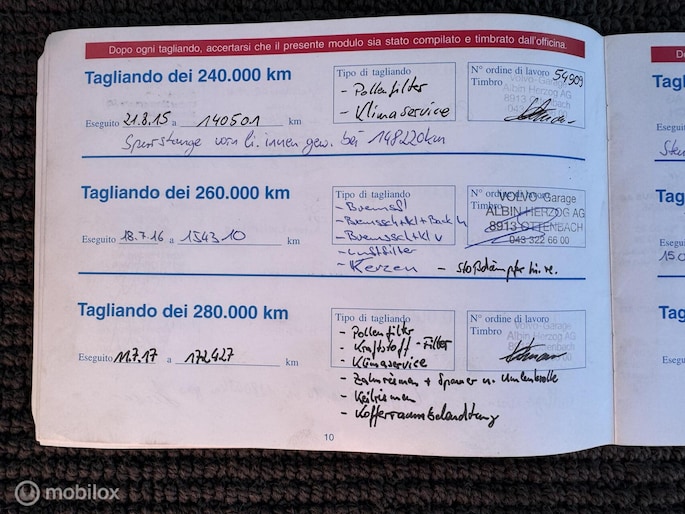 Dopo ogni tagliando, accertarsi che il presente modulo sia stato compilato e timbrato dall'officina.
Tagliando dei 240.000 km
Tipo di tagliando
- Pollenfilter
- Klimaservice
N° ordine di lavoro 54909
Timbro
Volvo-Garage
Albin Herzog AG
8913 Ottenbach
Eseguito 21.8.15 a 140501 km
Spurstange vorn li. innen gew. bei 148220km
Tagliando dei 260.000 km
Tipo di tagliando
- Bremsöl
- Bremssch+kl + Back h
- Bremssch+kl v
- Luftfilter
- Kerzen - Stoßdämpfer hi. re.
N° ordine di lavoro
Timbro
VOLVO-Garage
ALBIN HERZOG AG
8913 OTTENBACH
043 322 66 00
Eseguito 18.7.16 a 154310 km
Tagliando dei 280.000 km
Tipo di tagliando
- Pollenfilter
- Kraftstoff-Filter
- Klimaservice
- Zahnriemen + Spanner u. Umlenkrolle
- Keilriemen
- Kofferraumbeleuchtung
N° ordine di lavoro
Timbro
Volvo-Garage
Albin Herzog AG
Eseguito 11.7.17 a 172427 km
10
mobilox